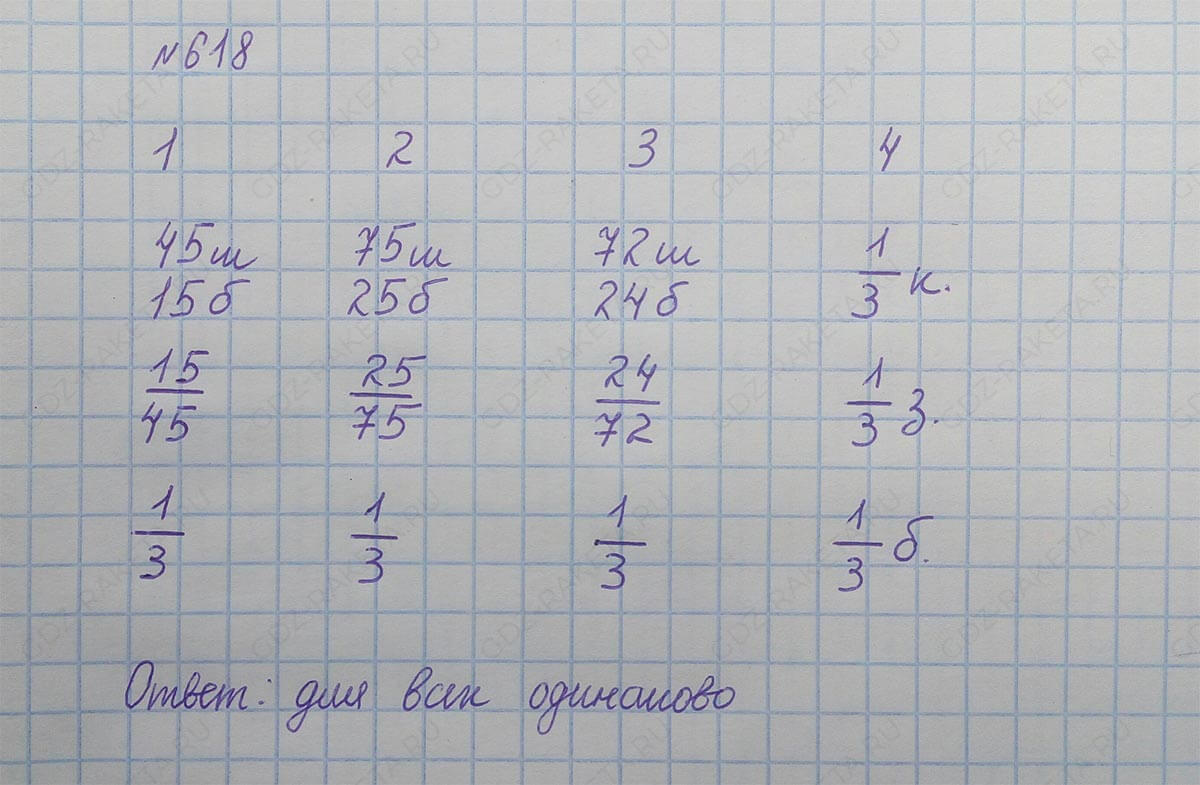 №618
1 2 3 4
45ш 75ш 72ш 1/3 к.
15б 25б 24б
15/45 25/75 24/72 1/3 з.
1/3 1/3 1/3 1/3 б.
Ответ: для всех одинаково
GDZ-RAKETA.RU